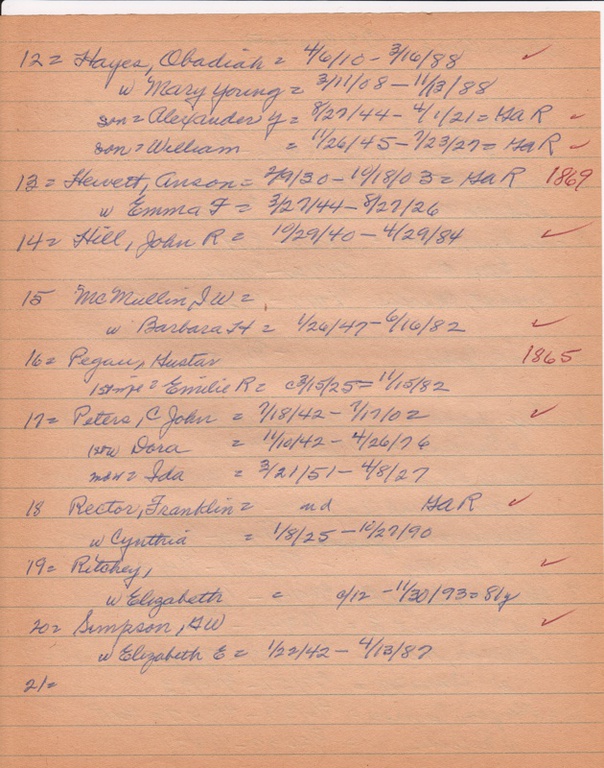 12 = Hayes, Obadiah = 4/6/10 - 3/16/88 ✓
w Mary Young = 3/11/08 - 11/13/88
son = Alexander Y = 8/27/44 - 4/1/21 = GaR ✓
son = William = 11/26/45 - 7/23/27 = GaR ✓
13 = Hewett, Anson = 2/9/30 - 10/18/03 = GaR 1869
w Emma F = 3/27/44 - 8/27/26
14 = Hill, John R = 10/29/40 - 4/29/84 ✓
15 McMullin, J W =
w Barbara H = 1/26/47 - 6/16/82 ✓
16 = Pegau, Gustav 1865
1st wife = Emilie R = c 3/15/25 = 11/15/82
17 = Peters, C John = 7/18/42 - 7/17/02 ✓
1st w Dora = 11/10/42 - 4/26/76
= Ida = 3/21/51 - 4/8/27
18 Rector, Franklin = nd GaR ✓
w Cynthia = 1/8/25 - 10/27/90
19 = Ritchey, ✓
w Elizabeth = c/12 - 11/30/93 = 81y
20 = Simpson, GW ✓
w Elizabeth E = 1/22/42 - 4/13/87
21 =